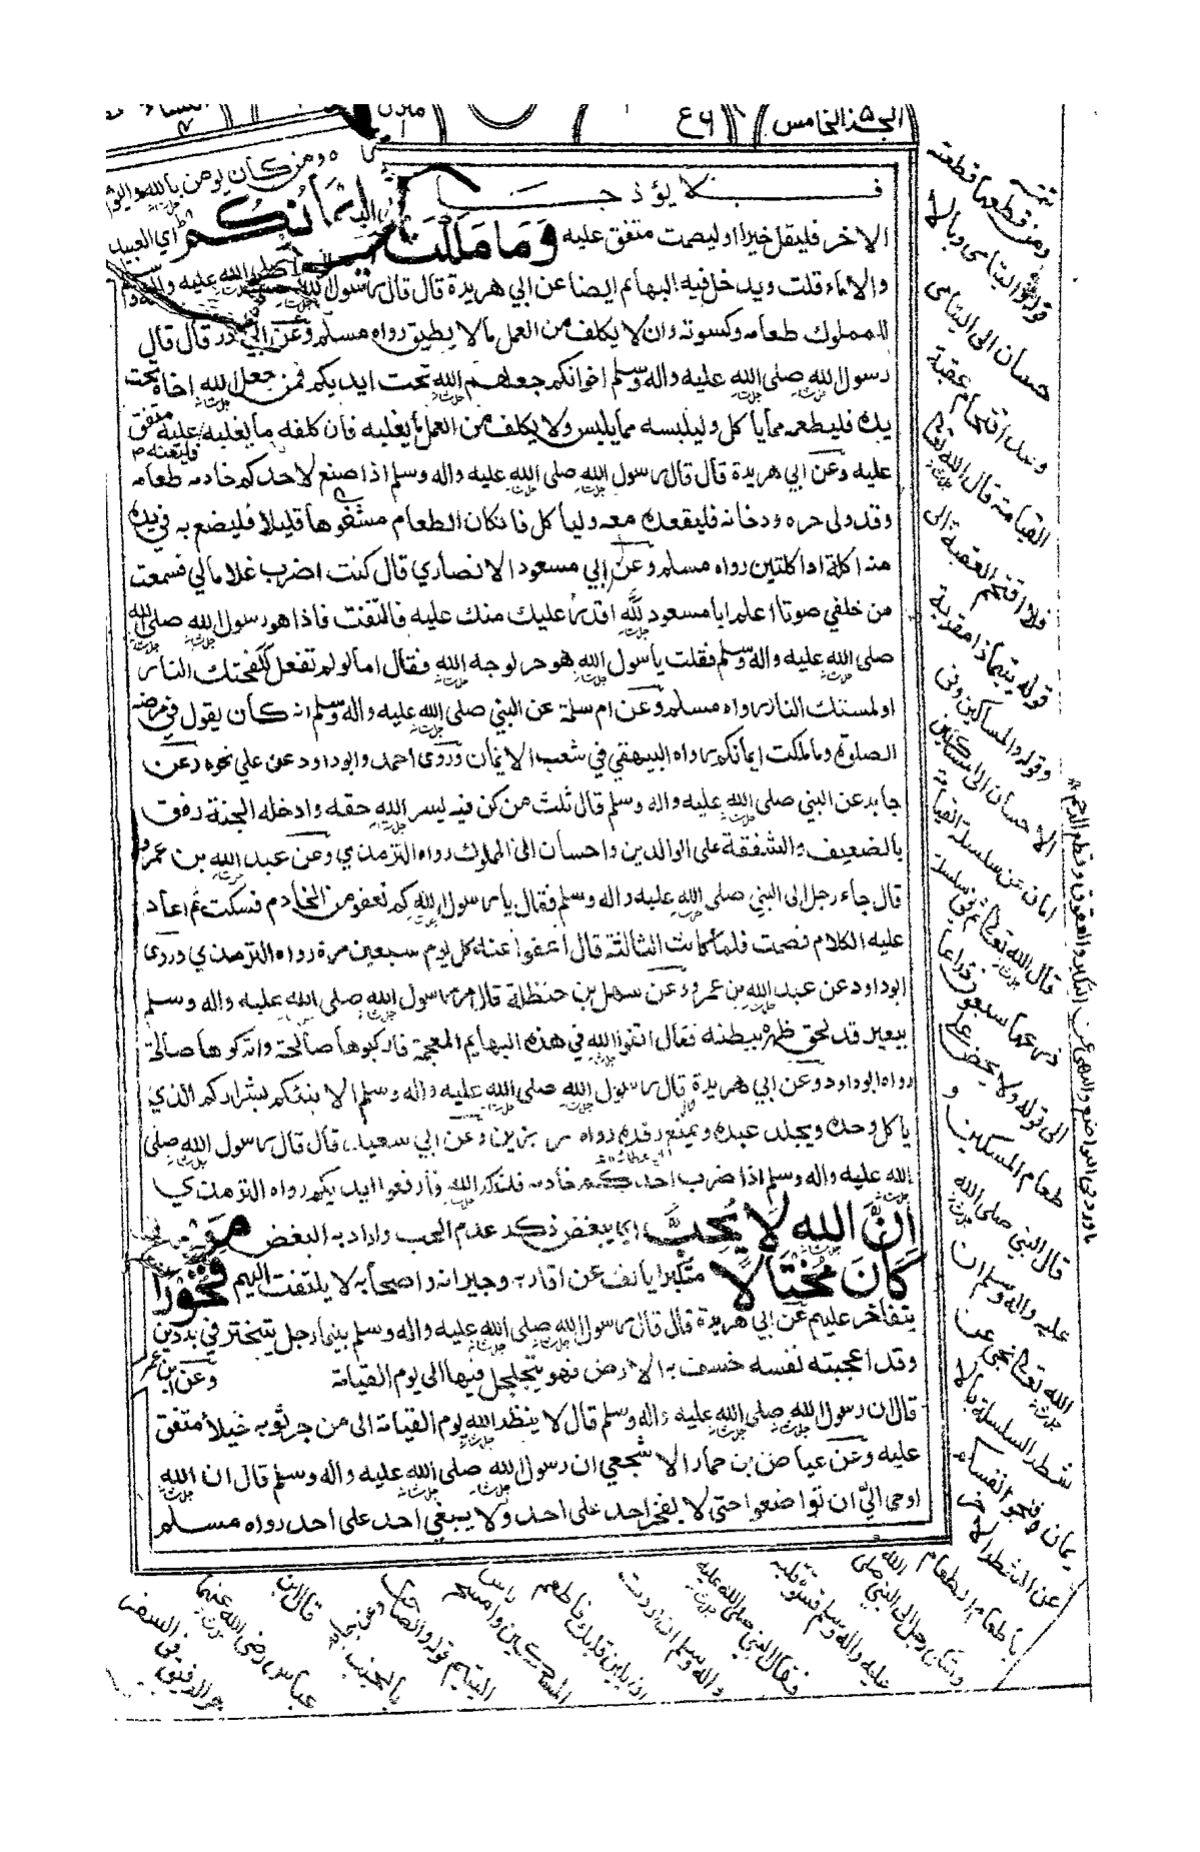 الجزء الخامس
ع ٦
منزل
ومن كان يؤمن بالله واليوم
فلا يؤذ جا
الاخر فليقل خيرا او ليصمت متفق عليه وَمَا مَلَكَتْ اَيْمَانُكُمْ اي العبيد
والاماء قلت ويدخل فيه البهائم ايضا عن ابي هريرة قال قال رسول الله صلى الله عليه واله وسلم
للمملوك طعامه وكسوته وان لا يكلف من العمل ما لا يطيق رواه مسلم وعن ابي ذر قال قال
رسول الله صلى الله عليه واله وسلم اخوانكم جعلهم الله تحت ايديكم فمن جعل الله اخاه تحت
يده فليطعمه مما ياكل وليلبسه مما يلبس ولا يكلف من العمل ما يغلبه فان كلفه ما يغلبه فليعنه عليه متفق
عليه وعن ابي هريرة قال قال رسول الله صلى الله عليه واله وسلم اذا صنع لاحدكم خادمه طعامه
وقد ولى حره ودخانه فليقعده معه ولياكل فان كان الطعام مشفوها قليلا فليضع به في يده
منه اكلة او اكلتين رواه مسلم وعن ابي مسعود الانصاري قال كنت اضرب غلاما لي فسمعت
من خلفي صوتا اعلم ابا مسعود لله اقدر عليك منك عليه فالتفت فاذا هو رسول الله صلى الله
صلى الله عليه واله وسلم فقلت يا رسول الله هو حر لوجه الله فقال اما لو لم تفعل للفحتك النار
او لمستك النار رواه مسلم وعن ام سلمة عن النبي صلى الله عليه واله وسلم انه كان يقول في مرضه
الصلوة وما ملكت ايمانكم رواه البيهقي في شعب الايمان وروى احمد وابو داود عن علي نحوه وعن
جابر عن النبي صلى الله عليه واله وسلم قال ثلث من كن فيه يسر الله حقه وادخله الجنة رفق
بالضعيف والشفقة على الوالدين واحسان الى المملوك رواه الترمذي وعن عبد الله بن عمرو
قال جاء رجل الى النبي صلى الله عليه واله وسلم فقال يا رسول الله كم نعفو من الخادم فسكت ثم اعاد
عليه الكلام فصمت فلما كانت الثالثة قال اعفوا عنه كل يوم سبعين مرة رواه الترمذي وروى
ابو داود عن عبد الله بن عمرو وعن سهل بن حنظلة قال مر رسول الله صلى الله عليه واله وسلم
ببعير قد لحق ظهره ببطنه فقال اتقوا الله في هذه البهايم المعجمة فاركبوها صالحة واتركوها صالحة
رواه ابو داود وعن ابي هريرة قال رسول الله صلى الله عليه واله وسلم الا انبئكم بشراركم الذي
ياكل وحده ويجلد عبده ويمنع رفده رواه رزين وعن ابي سعيد قال قال رسول الله صلى
الله عليه واله وسلم اذا ضرب احدكم خادمه فذكر الله فارفعوا ايديكم رواه الترمذي
اِنَّ اللهَ لَا يُحِبُّ اي يبغض ذكر عدم الحب واراد به البغض مَنْ
كَانَ مُخْتَالًا متكبرا يانف عن اقاربه وجيرانه واصحابه لا يلتفت اليهم فَخُوْرًا
يتفاخر عليهم عن ابي هريرة قال قال رسول الله صلى الله عليه واله وسلم بينما رجل يتبختر في بردين
وقد اعجبته نفسه خسف به الارض فهو يتجلجل فيها الى يوم القيامة وعن ابن عمر
قال ان رسول الله صلى الله عليه واله وسلم قال لا ينظر الله يوم القيامة الى من جر ثوبه خيلاء متفق
عليه وعن عياض بن حمار الاشجعي ان رسول الله صلى الله عليه واله وسلم قال ان الله
اوحى اليّ ان تواضعوا حتى لا يفخر احد على احد ولا يبغي احد على احد رواه مسلم
ومن قطعها قطعته
قوله واليتامى وبالا
حسان الى اليتامى
وعد اقتحام عقبة
القيامة قال الله تعالى
فلا اقتحم العقبة الى
قوله يتيما ذا مقربة
وقوله والمساكين وفي
الاحسان الى المساكين
امان عن سلسلة القيامة
قال الله تعالى ثم في سلسلة
ذرعها سبعون ذراعا
الى قوله ولا يحض على
طعام المسكين و
قال النبي صلى الله
عليه واله وسلم ان
الله تعالى نجى عن
شطر السلسلة بالا
يمان وفنجوا انفسكم
عن الشطر الاخر
باطعام الطعام
رجل الى النبي صلى الله
عليه واله وسلم قسوة قلبه
فقال النبي صلى الله عليه
واله وسلم ان اردت
ان يلين قلبك فاطعم
المسكين وامسح راس
اليتيم قوله والصاحب
بالجنب
قال ابن
عباس رضي الله عنهما
هو الرفيق في السفر
ما ورد في التواضع والنهي عن التكبر والعقوق وقطع الرحم